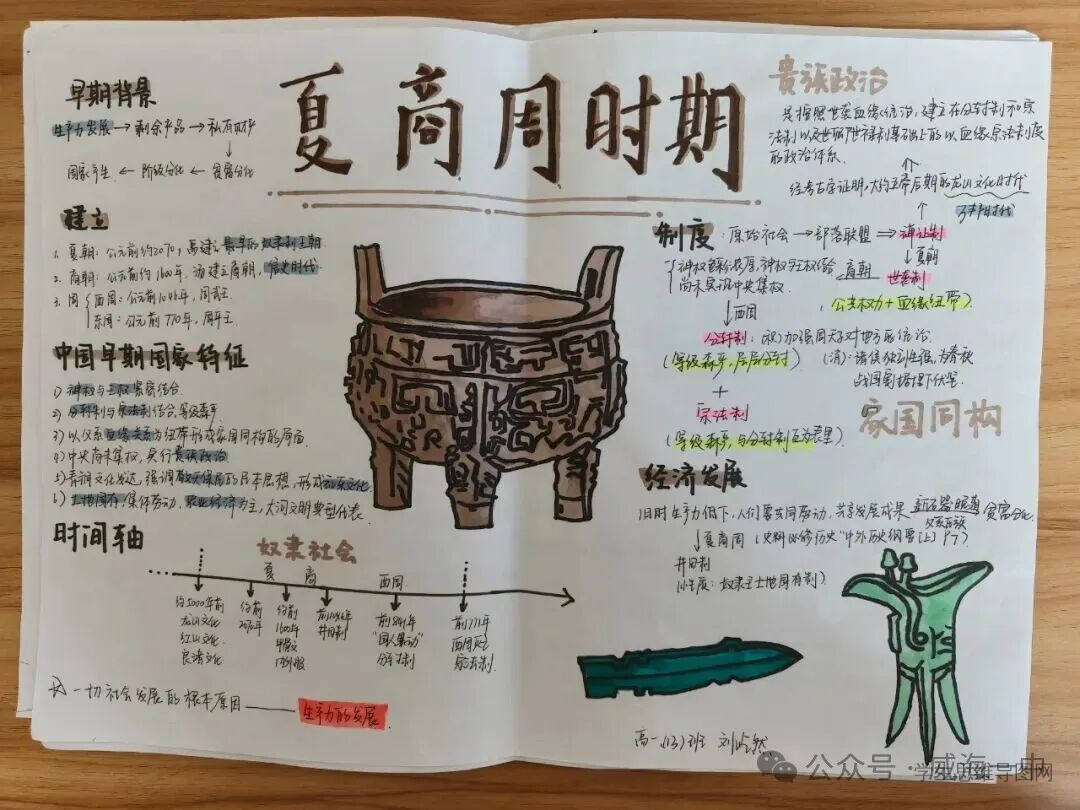 夏商周时期
早期背景
生产力发展→剩余产品→私有财产
↓
国家产生←阶级分化←贫富分化
建立
1. 夏朝：公元前约2070，禹建立最早的奴隶制王朝
2. 商朝：公元前约1600年，汤建立商朝，信史时代
3. 周 西周：公元前1046年，周武王
东周：公元前770年，周平王
中国早期国家特征
1) 神权与王权紧密结合
2) 分封制与宗法制结合，等级森严
3) 以父系血缘关系为纽带形成家国同构的局面
4) 中央尚未集权，实行贵族政治
5) 青铜文化发达，强调敬天保民的民本思想，形成礼乐文化
6) 土地国有，集体劳动，农业经济为主，大河文明典型代表
时间轴
奴隶社会
夏 商 西周
约5000年前
龙山文化
红山文化
良渚文化
约前
2070年
约前
1600年
甲骨文
前1046年
井田制
前841年
"国人暴动"
分封制
前771年
西周灭亡
☆ 一切社会发展的根本原因——生产力的发展
贵族政治
是按照世袭血缘统治，建立在分封制和宗
法制以及世卿世禄制基础上的以血缘宗法制度
的政治体系
↑
经考古学证明，大约五帝后期的龙山文化时代
万邦时代
制度：原始社会→部落联盟⇒禅让制
↓夏朝
商朝 世袭制
尚未实现中央集权
(公共权力+血缘纽带)
↓西周
分封制：(积)加强周天子对地方的统治
(等级森严，层层分封) (消)：诸侯独立性强，为春秋
战国割据埋下伏笔
+
宗法制
(等级森严，与分封制互为表里)
家国同构
经济发展
旧时生产力低下，人们要共同劳动，共享发展成果 新石器晚期 贫富分化
父系氏族
↓夏商周 (史料 必修历史"中外历史纲要[上] P7)
井田制
奴隶主土地国有制)
高一.(13)班 刘
公众号·威海一中
学生思维导图网